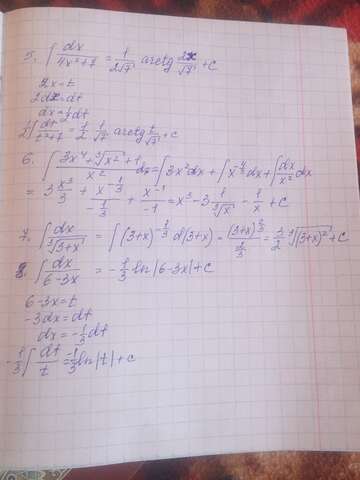 5. ∫ dx/(4x²+7) = 1/(2√7) arctg 2x/√7 + c
2x=t
2dx=dt
dx=½dt
½∫ dt/(t²+7) = 1/2 · 1/√7 arctg t/√7 + c
6. ∫ (3x⁴+∛x²+1)/x² dx = ∫3x²dx + ∫x^(-4/3)dx + ∫ dx/x² dx
= 3 x³/3 + x^(-1/3)/(-1/3) + x⁻¹/(-1) = x³ - 3 1/∛x - 1/x + c
7. ∫ dx/∛(3+x) = ∫(3+x)^(-1/3) d(3+x) = (3+x)^(2/3)/(2/3) = 3/2 ∛(3+x)² + c
8. ∫ dx/(6-3x) = -1/3 ln|6-3x| + c
6-3x=t
-3dx=dt
dx=-1/3 dt
-1/3 ∫ dt/t = -1/3 ln|t| + c